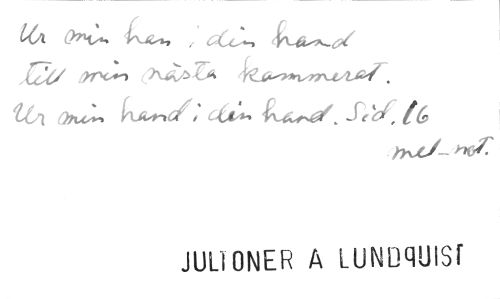 Ur min han i din hand
till min nästa kammerat.
Ur min hand i din hand. Sid. 16
mel-not.
JULTONER A LUNDQUIST